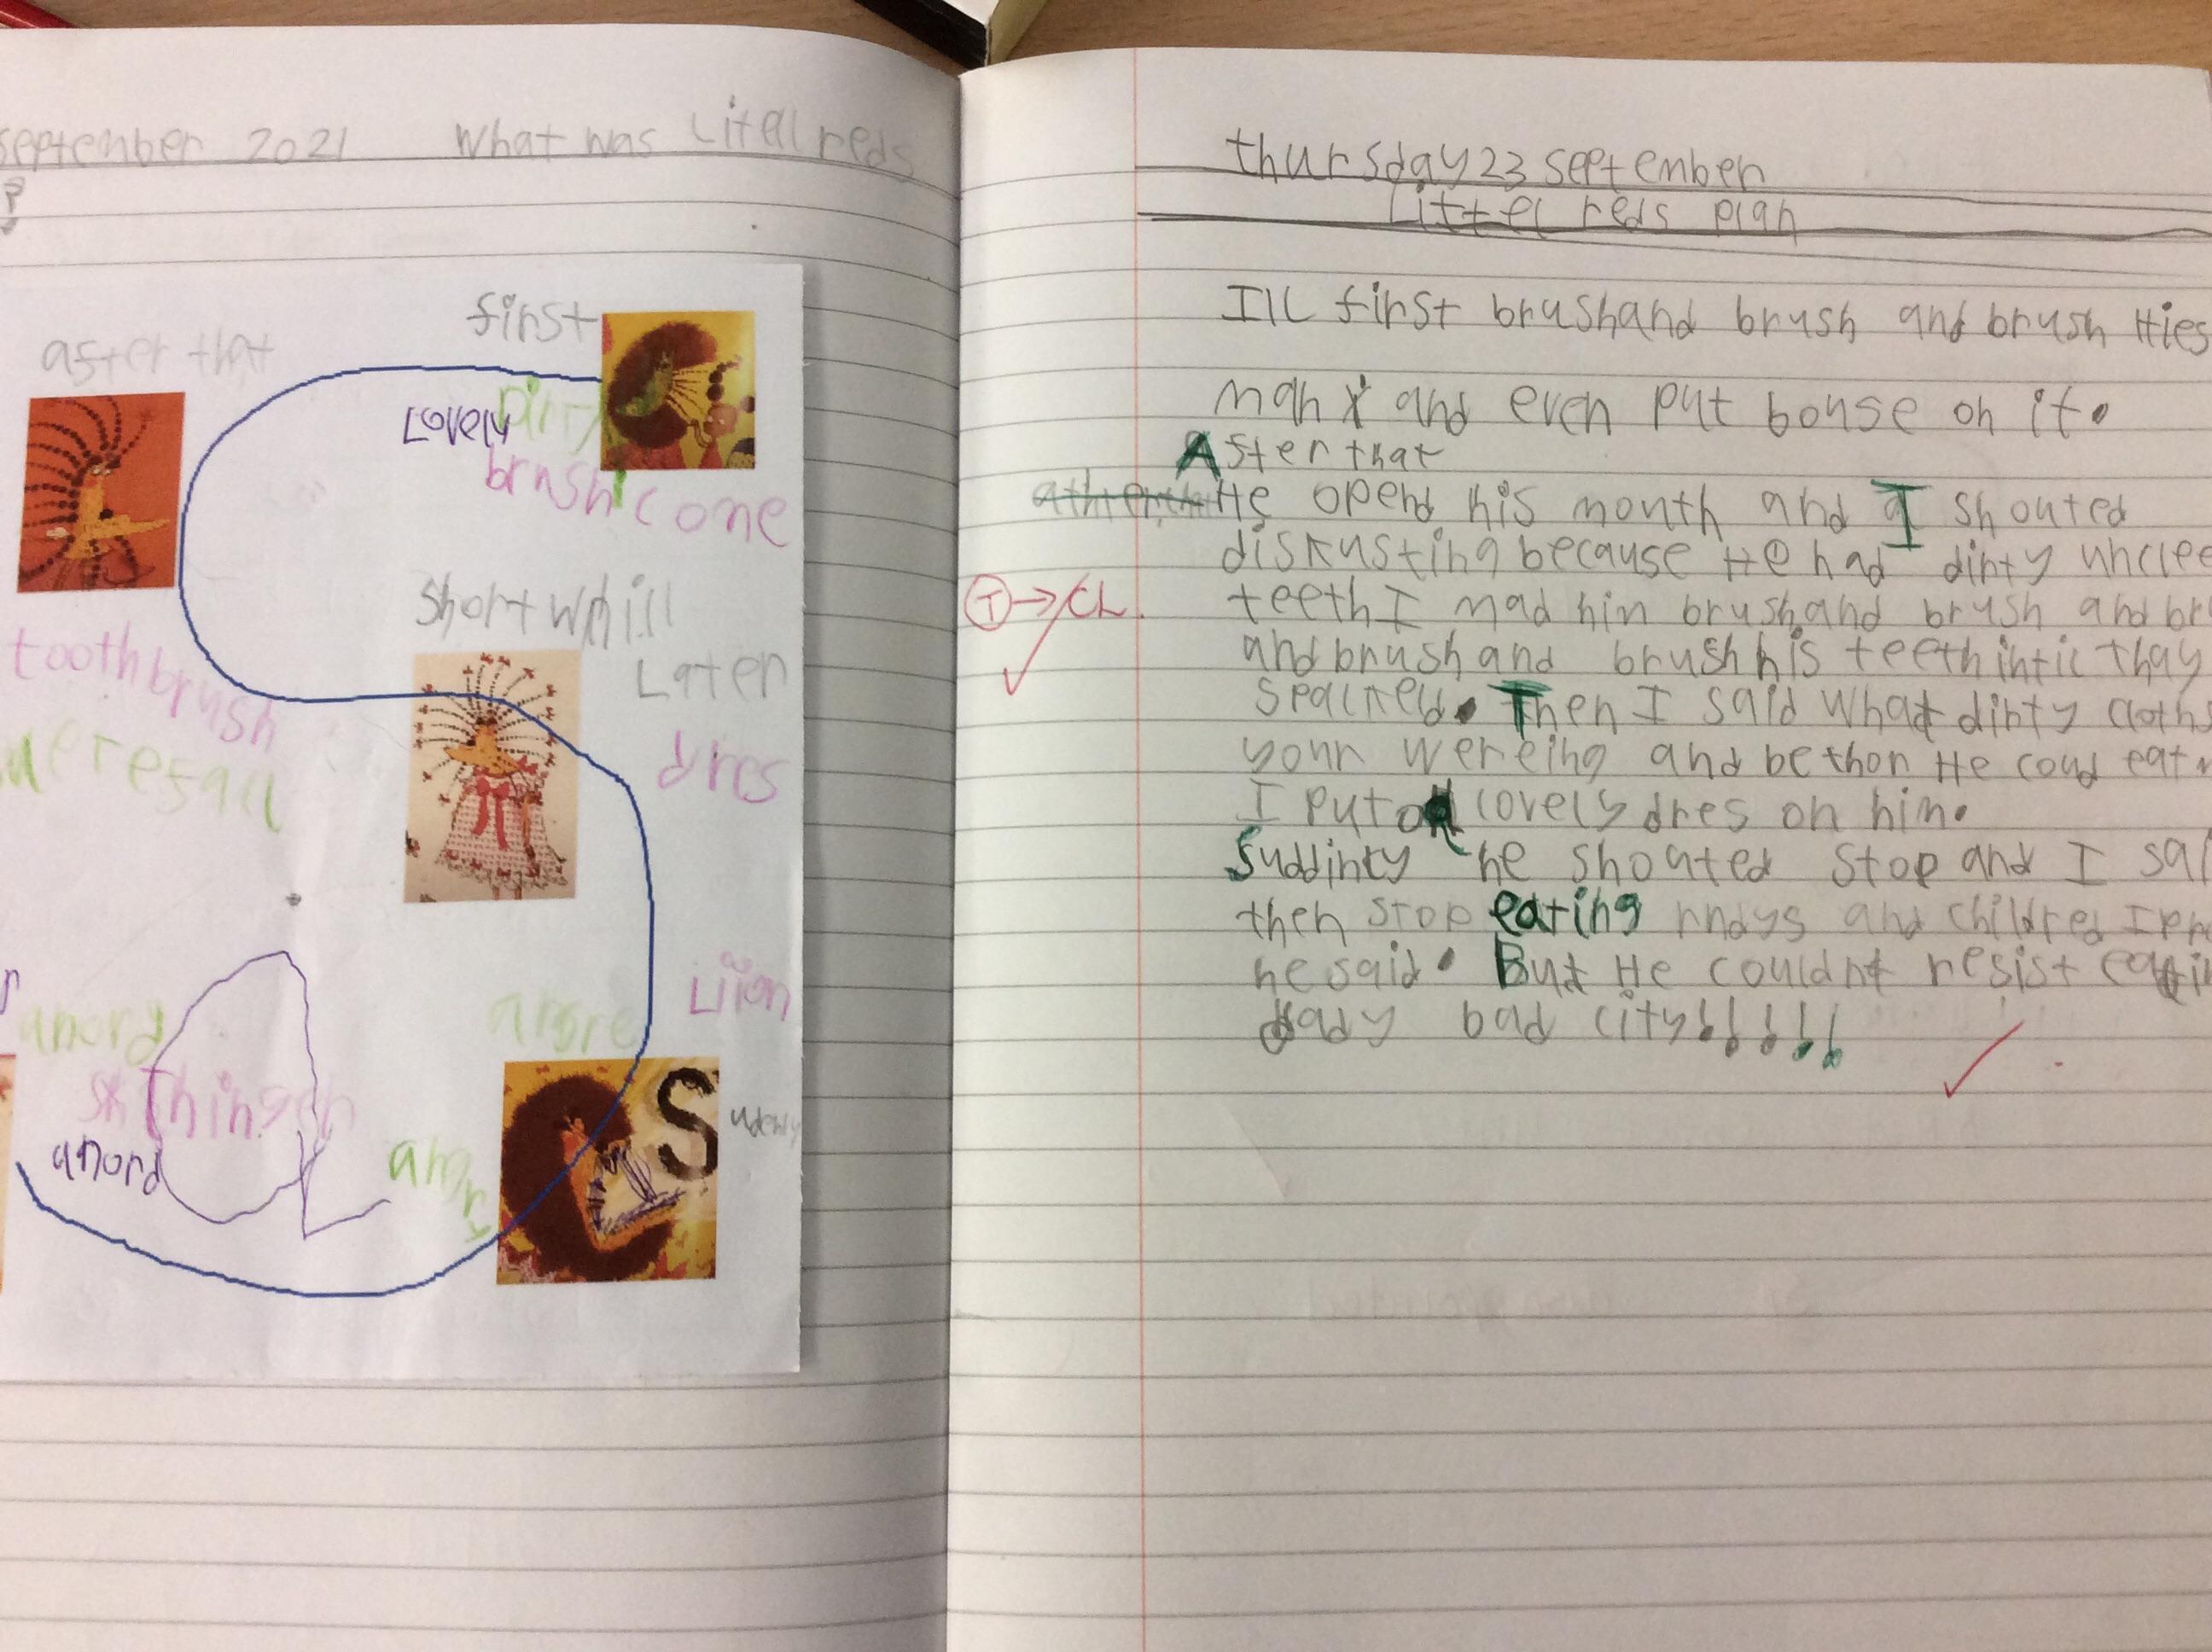 september 2021 What was Litell reds
?
first
after that
Lovely
Dirty
brush cone
Short whill
Later
toothbrush
dres
Liion
anord
angre
S
udenly
anord
angry
thursday 23 september
Littel reds plan
Ill first brushand brush and brush
man and even put bouse on it.
After that
He opend his mouth and I shouted
diskusting because He had dirty unclee
teeth I mad him brushand brush and br
T → CL.
and brush and brush his teeth intil thay
spalkeld. Then I said What dirty cloths
your wereing and bethor He coud eat
I put a lovely dres on him.
Suddinty he shouted stop and I sai
then stop eating and childred I pr
he said. But He couldnt resist
bad city!!!!!